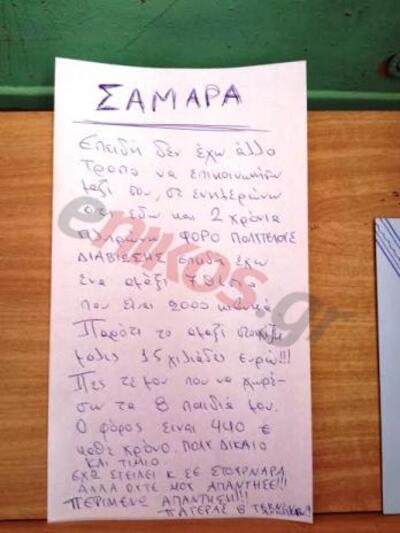 ΣΑΜΑΡΑ
Επειδή δεν έχω άλλο
τρόπο να επικοινωνήσω
μαζί σου, σε ενημερώνω
ότι εδώ και 2 χρόνια
πληρώνω ΦΟΡΟ ΠΟΛΥΤΕΛΟΥΣ
ΔΙΑΒΙΩΣΗΣ επειδή έχω
ένα αμάξι 7θέσιο
που είναι 2000 κυβικά
Παρότι το αμάξι στοιχίζει
μόλις 15 χιλιάδες ευρώ!!!
Πες τε μου που να χωρέ-
σω τα 8 παιδιά μου.
Ο φόρος είναι 440 €
κάθε χρόνο. ΠΟΛΥ ΔΙΚΑΙΟ
ΚΑΙ ΤΙΜΙΟ.
ΕΧΩ ΣΤΕΙΛΕΙ Κ ΣΕ ΣΤΟΥΡΝΑΡΑ
ΑΛΛΑ ΟΥΤΕ ΜΟΥ ΑΠΑΝΤΗΣΕ!!
ΠΕΡΙΜΕΝΩ ΑΠΑΝΤΗΣΗ!!!
ΠΑΤΕΡΑΣ 8
enikos.gr